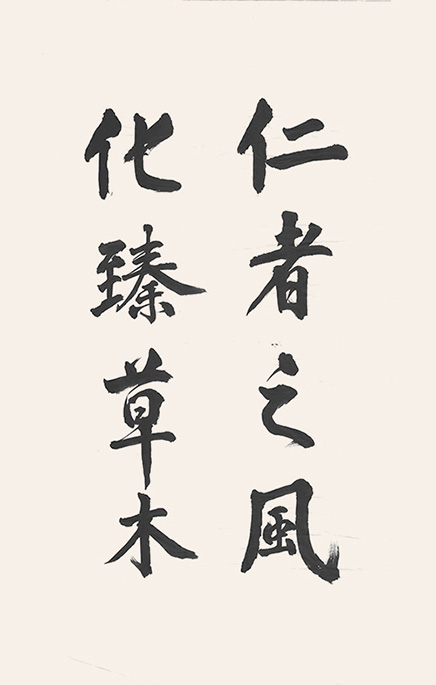 仁者之風
化臻草木